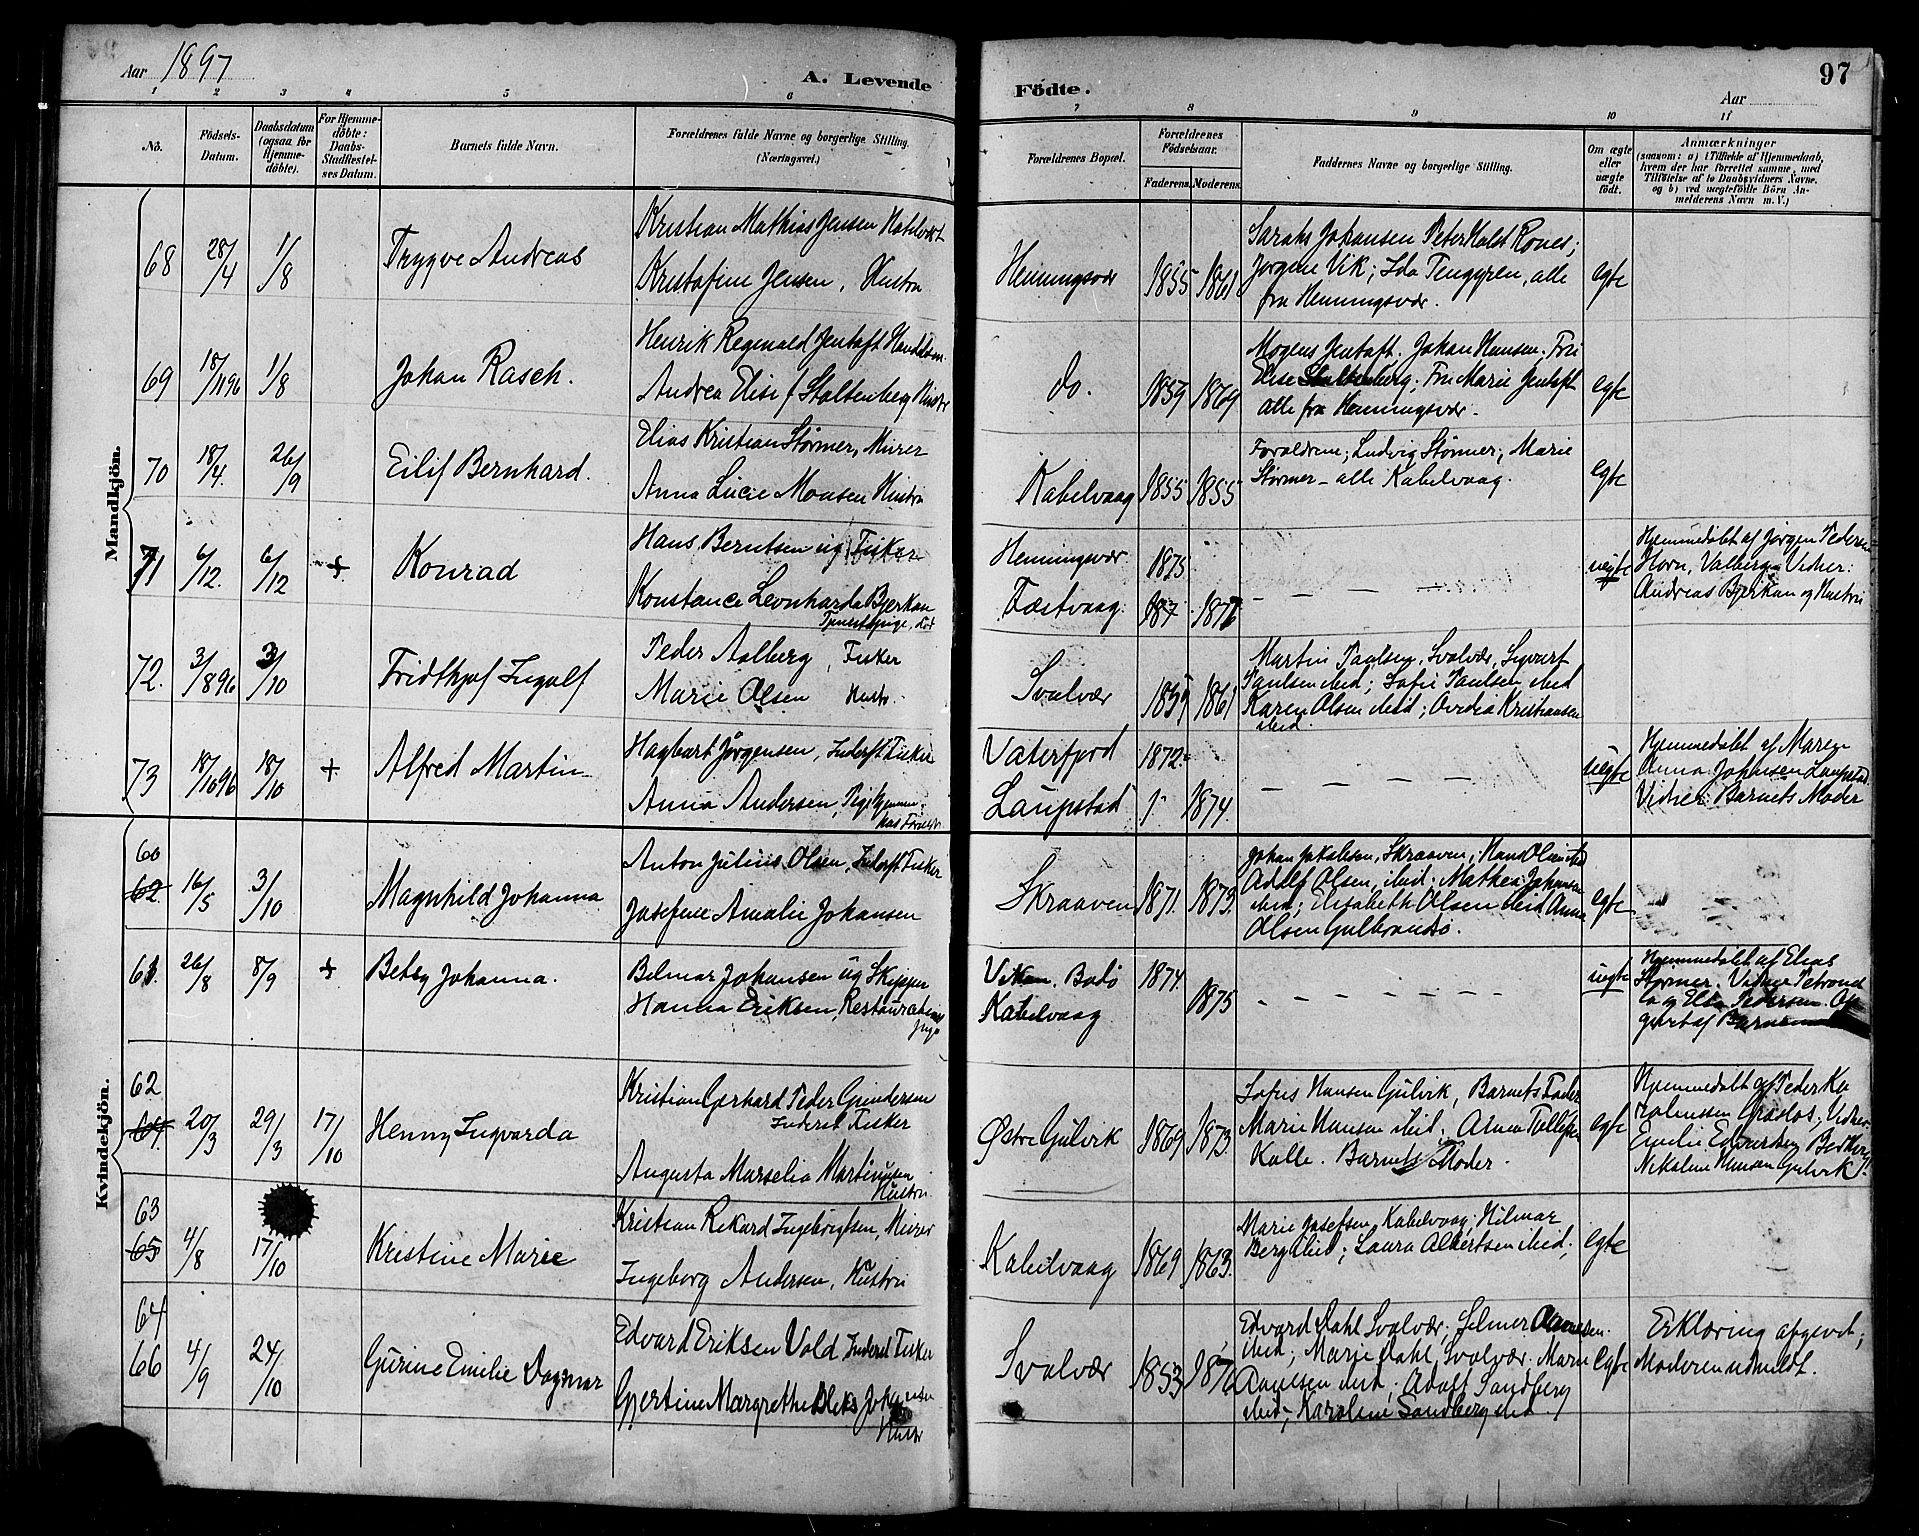 Aar 1897
A. Levende
Födte.
97
Aar
1 2 3 4 5 6 7 8 9 10 11
No.
Födsels-Datum.
Daabsdatum (ogsaa for Hjemme-döbte).
For Hjemme-döbte: Daabs-Stadfæstel-ses Datum.
Barnets fulde Navn.
Forældrenes fulde Navne og borgerlige Stilling.
(Næringsvei.)
Forældrenes Bopæl.
Forældrenes Födselsaar.
Faderens. Moderens.
Faddernes Navne og borgerlige Stilling.
Om ægte eller uægte födt.
Anmærkninger
(saasom: a) i Tilfælde af Hjemmedaab,
hvem der har forrettet samme, med
Tilföielse af to Daabsvidners Navne,
og b) ved uægtefödte Börn An-
melderens Navn m. V.)
Mandkjön.
68 28/4 1/8 Trygve Andreas
Kristian Mathias Jensen
Kristofine Jensen, Hustru
Henningsvær 1855 1861
Sarah Johansen Peter Holst Rones;
Jørgine Vik; Ida Tengyren, alle
fra Henningsvær.
egte
69 18/11 96 1/8 Johan Rasch.
Henrik Reginald Jentoft
Andrea Elise f Stoltenberg Hustr
do. 1859 1869
Mogens Jentoft. Johan Hansen. Fru
Elise Stoltenberg; Fru Marie Jentoft
alle fra Henningsvær.
egte
70 18/4. 26/9 Eilif Bernhard.
Elias Kristian Størmer, Murer
Anna Lucie Monsen Hustru
Kabelvaag 1855 1855
Forældrene; Ludvig Størmer; Marie
Størmer - alle Kabelvaag.
egte
71 6/12. 6/12 + Konrad
Hans Berntsen ug Fisker
Konstance Leonharda Bjerkan
Tjenestepige,
Henningsvær 1875
Festvaag. 187 1877
uegte
Hjemmedøbt af Jørgen Pedersen
Horn, Valberg. Vidner:
Andreas Bjerkan og Hustru
72. 3/8 96 3/10 Fridthjof Ingolf
Peder Aalberg, Fisker
Marie Olsen Hustr.
Svolvær 1859 1861
Martin Paulsen, Svolvær, Syvert
Paulsen ibid; Sofie Paulsen ibid
Karen Olsen ibid; Ovidia Kristiansen
ibid.
73 18/10 96 18/10 + Alfred Martin
Hagbart Jørgensen, Inderst Fisker
Anna Andersen, Pige hjemme
hos Foreldr.
Vaterfjord 1872
Laupstad 1874.
uegte
Hjemmedøbt af Maren
Anna Johnsen Laupstad
Vidner: Barnets Moder
Kvindekjön.
60
62. 16/5 3/10 Magnhild Johanna
Anton Julius Olsen, Inderst Fisker
Josefine Amalie Johansen
Skraaven 1871. 1873.
Johan Jakobsen, Skraaven; Hans Olsen ibid
Adolf Olsen, ibid. Mathea Johansen
ibid; Elisabeth Olsen ibid Anna
Olsen Gulbrandsø.
egte
61. 26/8 8/9 + Betsy Johanna.
Belmar Johansen ug Skipper
Hanna Eriksen, Restaurations
pige
Viken. Bodø 1874.
Kabelvaag 1875
uegte
Hjemmedøbt af Elias
Størmer. Vidner Petronel
la og Elen Pedersen. Op
givet af
62
64. 20/3 29/3 17/10 Henny Ingvarda
Kristian Gerhard Peder Gundersen
Inderst Fisker
Augusta Marselia Martinusen
Hustru.
Østre Gulvik 1869 1873.
Sofus Hansen Gulvik, Barnets Fader
Marie Hansen ibid. Anna Tollefsen
Kalle. Barnets Moder.
egte
Hjemmedøbt af Peder
Emelie Edvardsen
Nikoline Hansen Gulvik.
63
65 4/8 17/10 Kristine Marie
Kristian Rikard Ingebrigtsen, Murer
Ingeborg Andersen, Hustru
Kabelvaag 1869 1863.
Marie Josefsen, Kabelvaag; Hilmar
Berg ibid; Laura Albertsen ibid.
egte
64
66 4/9 24/10 Gurine Emilie Dagmar
Edvard Eriksen Vold Inderst Fisker
Gjertine Margrethe
Hustr
Svolvær 1853
Edvard Dahl Svolvær, Selmer
ibid; Marie Dahl, Svolvær. Marie
Paulsen ibid; Adolf Sandberg
ibid; Karoline Sandberg ibid
egte
Erklæring afgivet;
Moderen udmeldt.